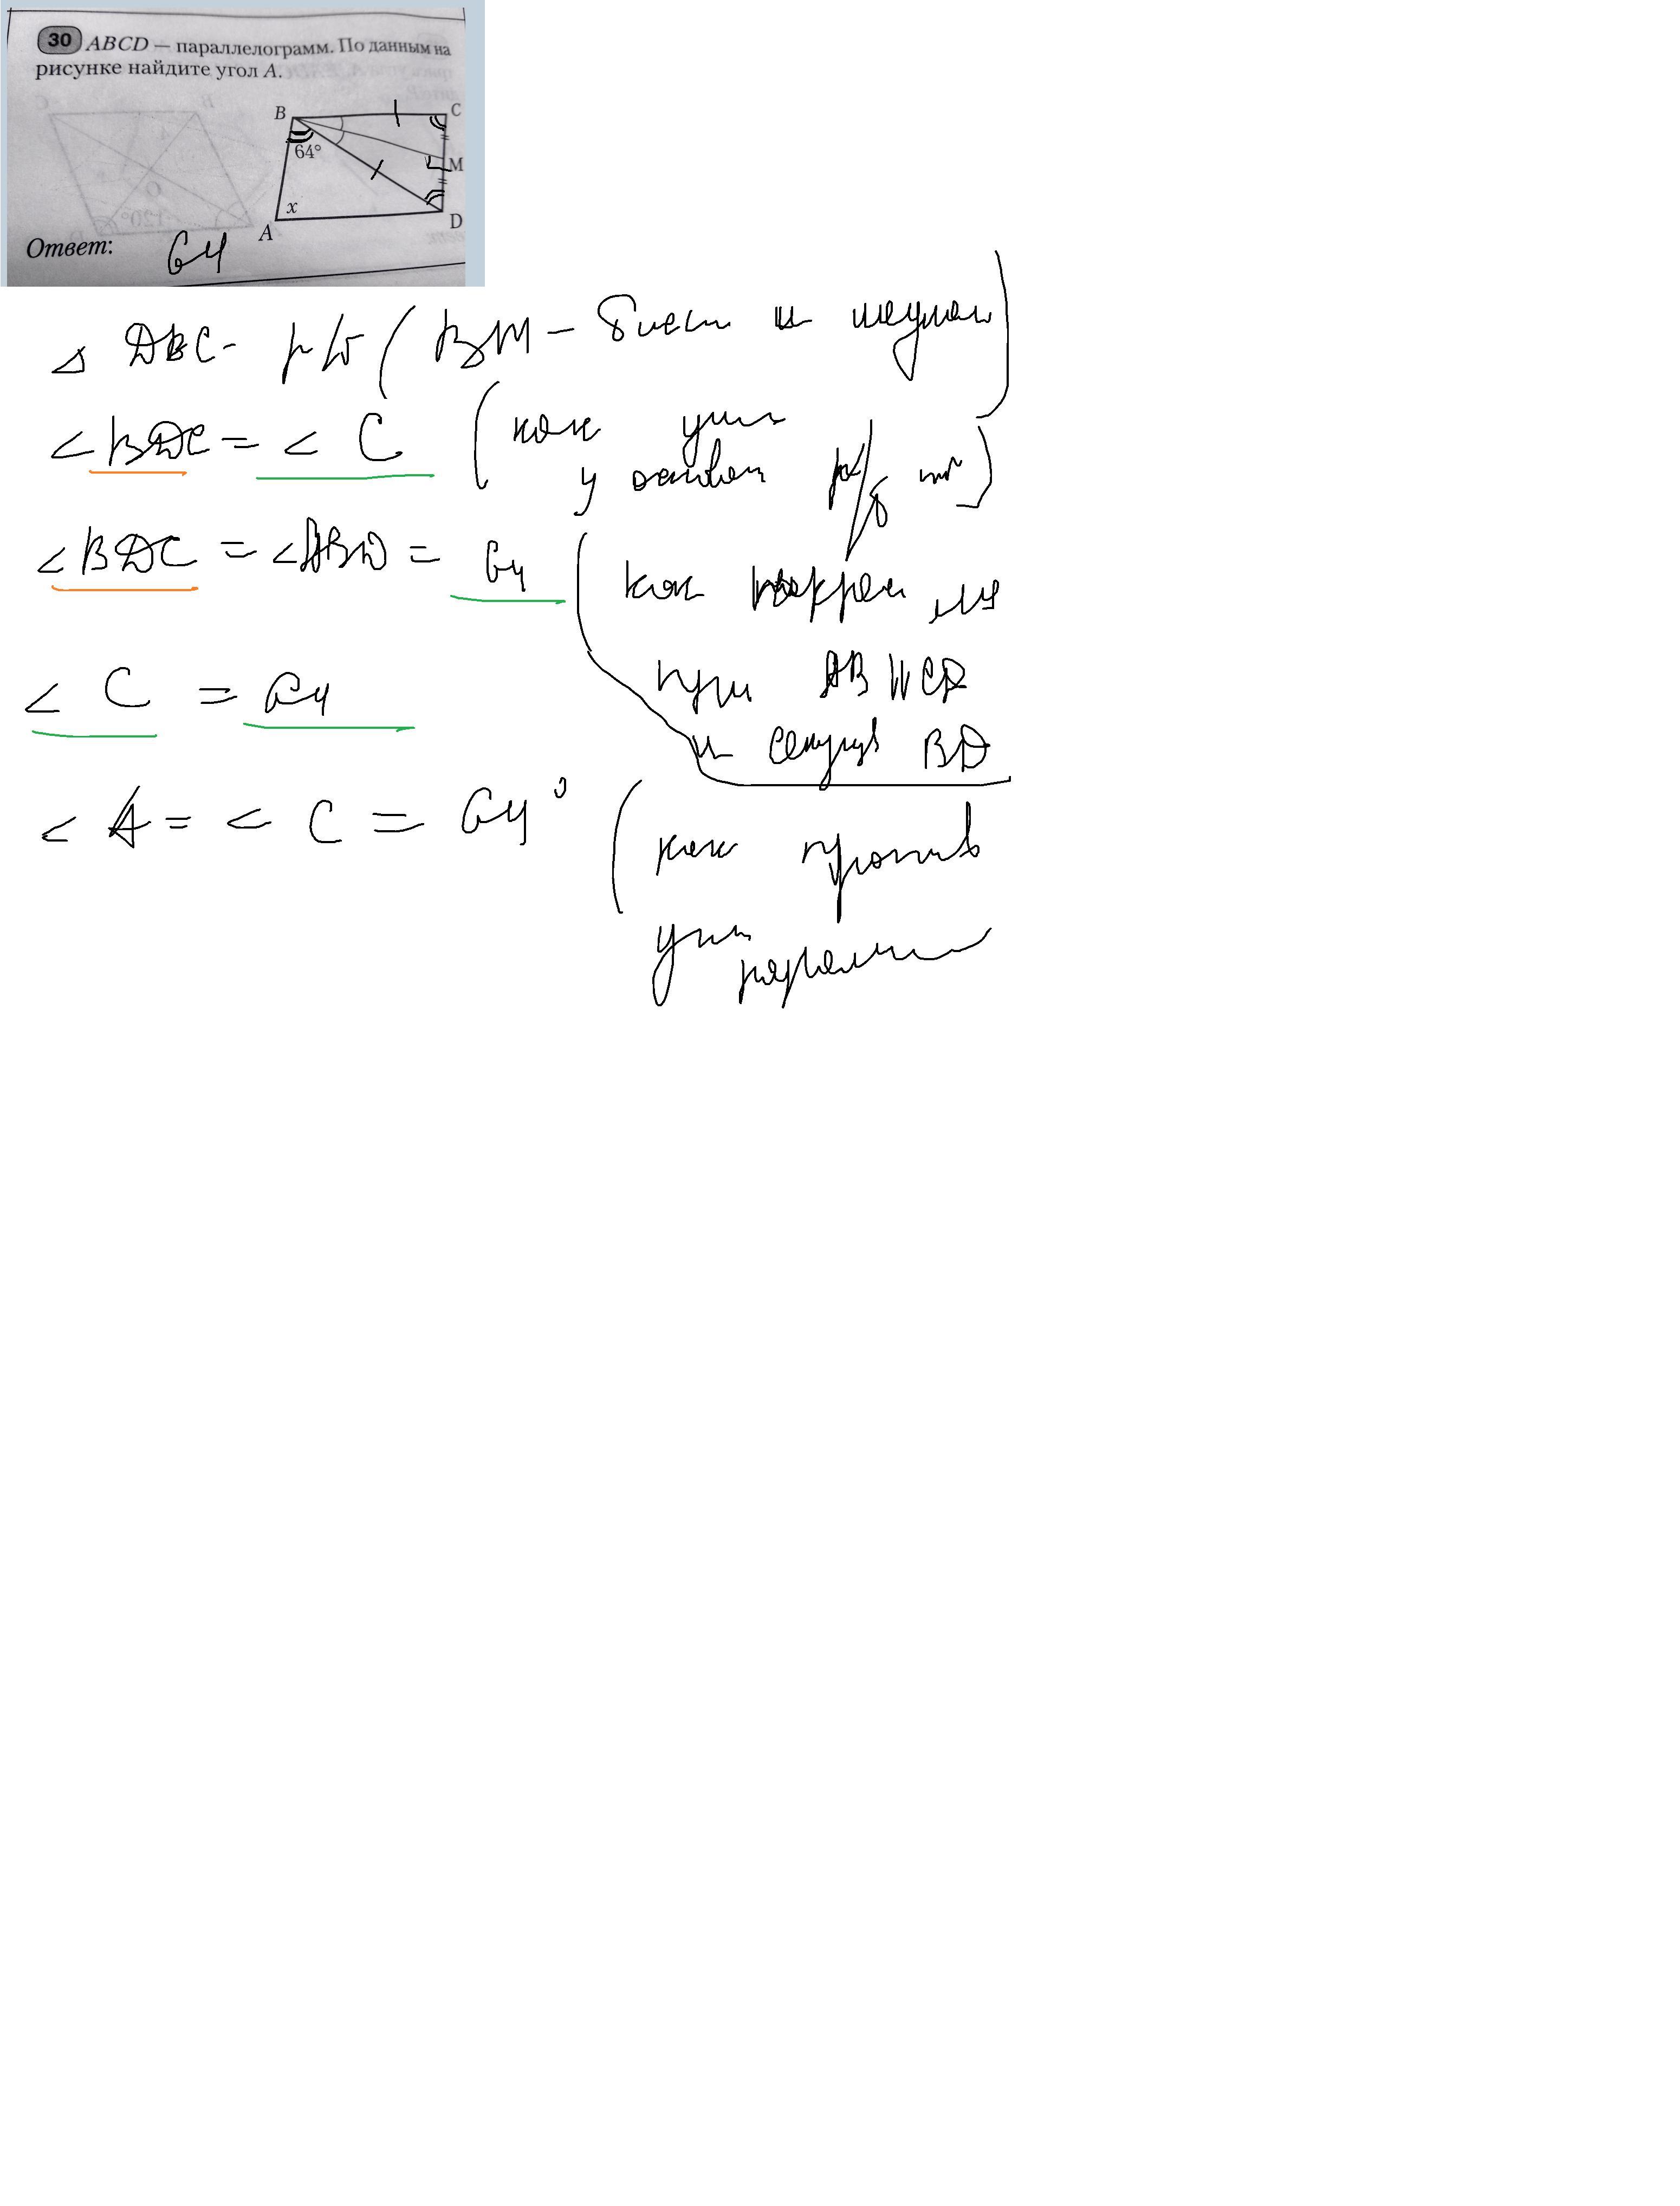 30 ABCD — параллелограмм. По данным на
рисунке найдите угол A.
B
C
64°
M
x
A
D
Ответ: 64
△ DBC - р/б ( BM – бисс и медиан )
∠ BDC = ∠ C ( как угл
у основан р/б тр )
∠ BDC = ∠ABD = 64 ( как
при AB || CD
и секущ BD
∠ C = 64
∠ A = ∠ C = 64° ( как против
угл
паралл